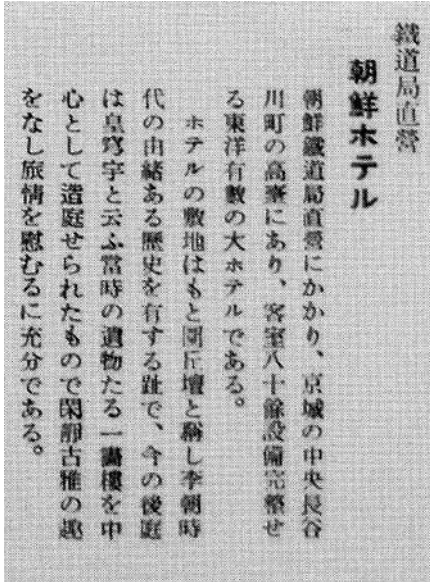 鐵道局直營
朝鮮ホテル
朝鮮鐵道局直營にかかり、京城の中央長谷
川町の高臺にあり、客室八十餘設備完整せ
る東洋有數の大ホテルである。
ホテルの敷地はもと圜丘壇と稱し李朝時
代の由緒ある歷史を有する趾で、今の後庭
は皇穹宇と云ふ當時の遺物たる一畵樓を中
心として造庭せられたもので閑靜古雅の趣
をなし旅情を慰むるに充分である。